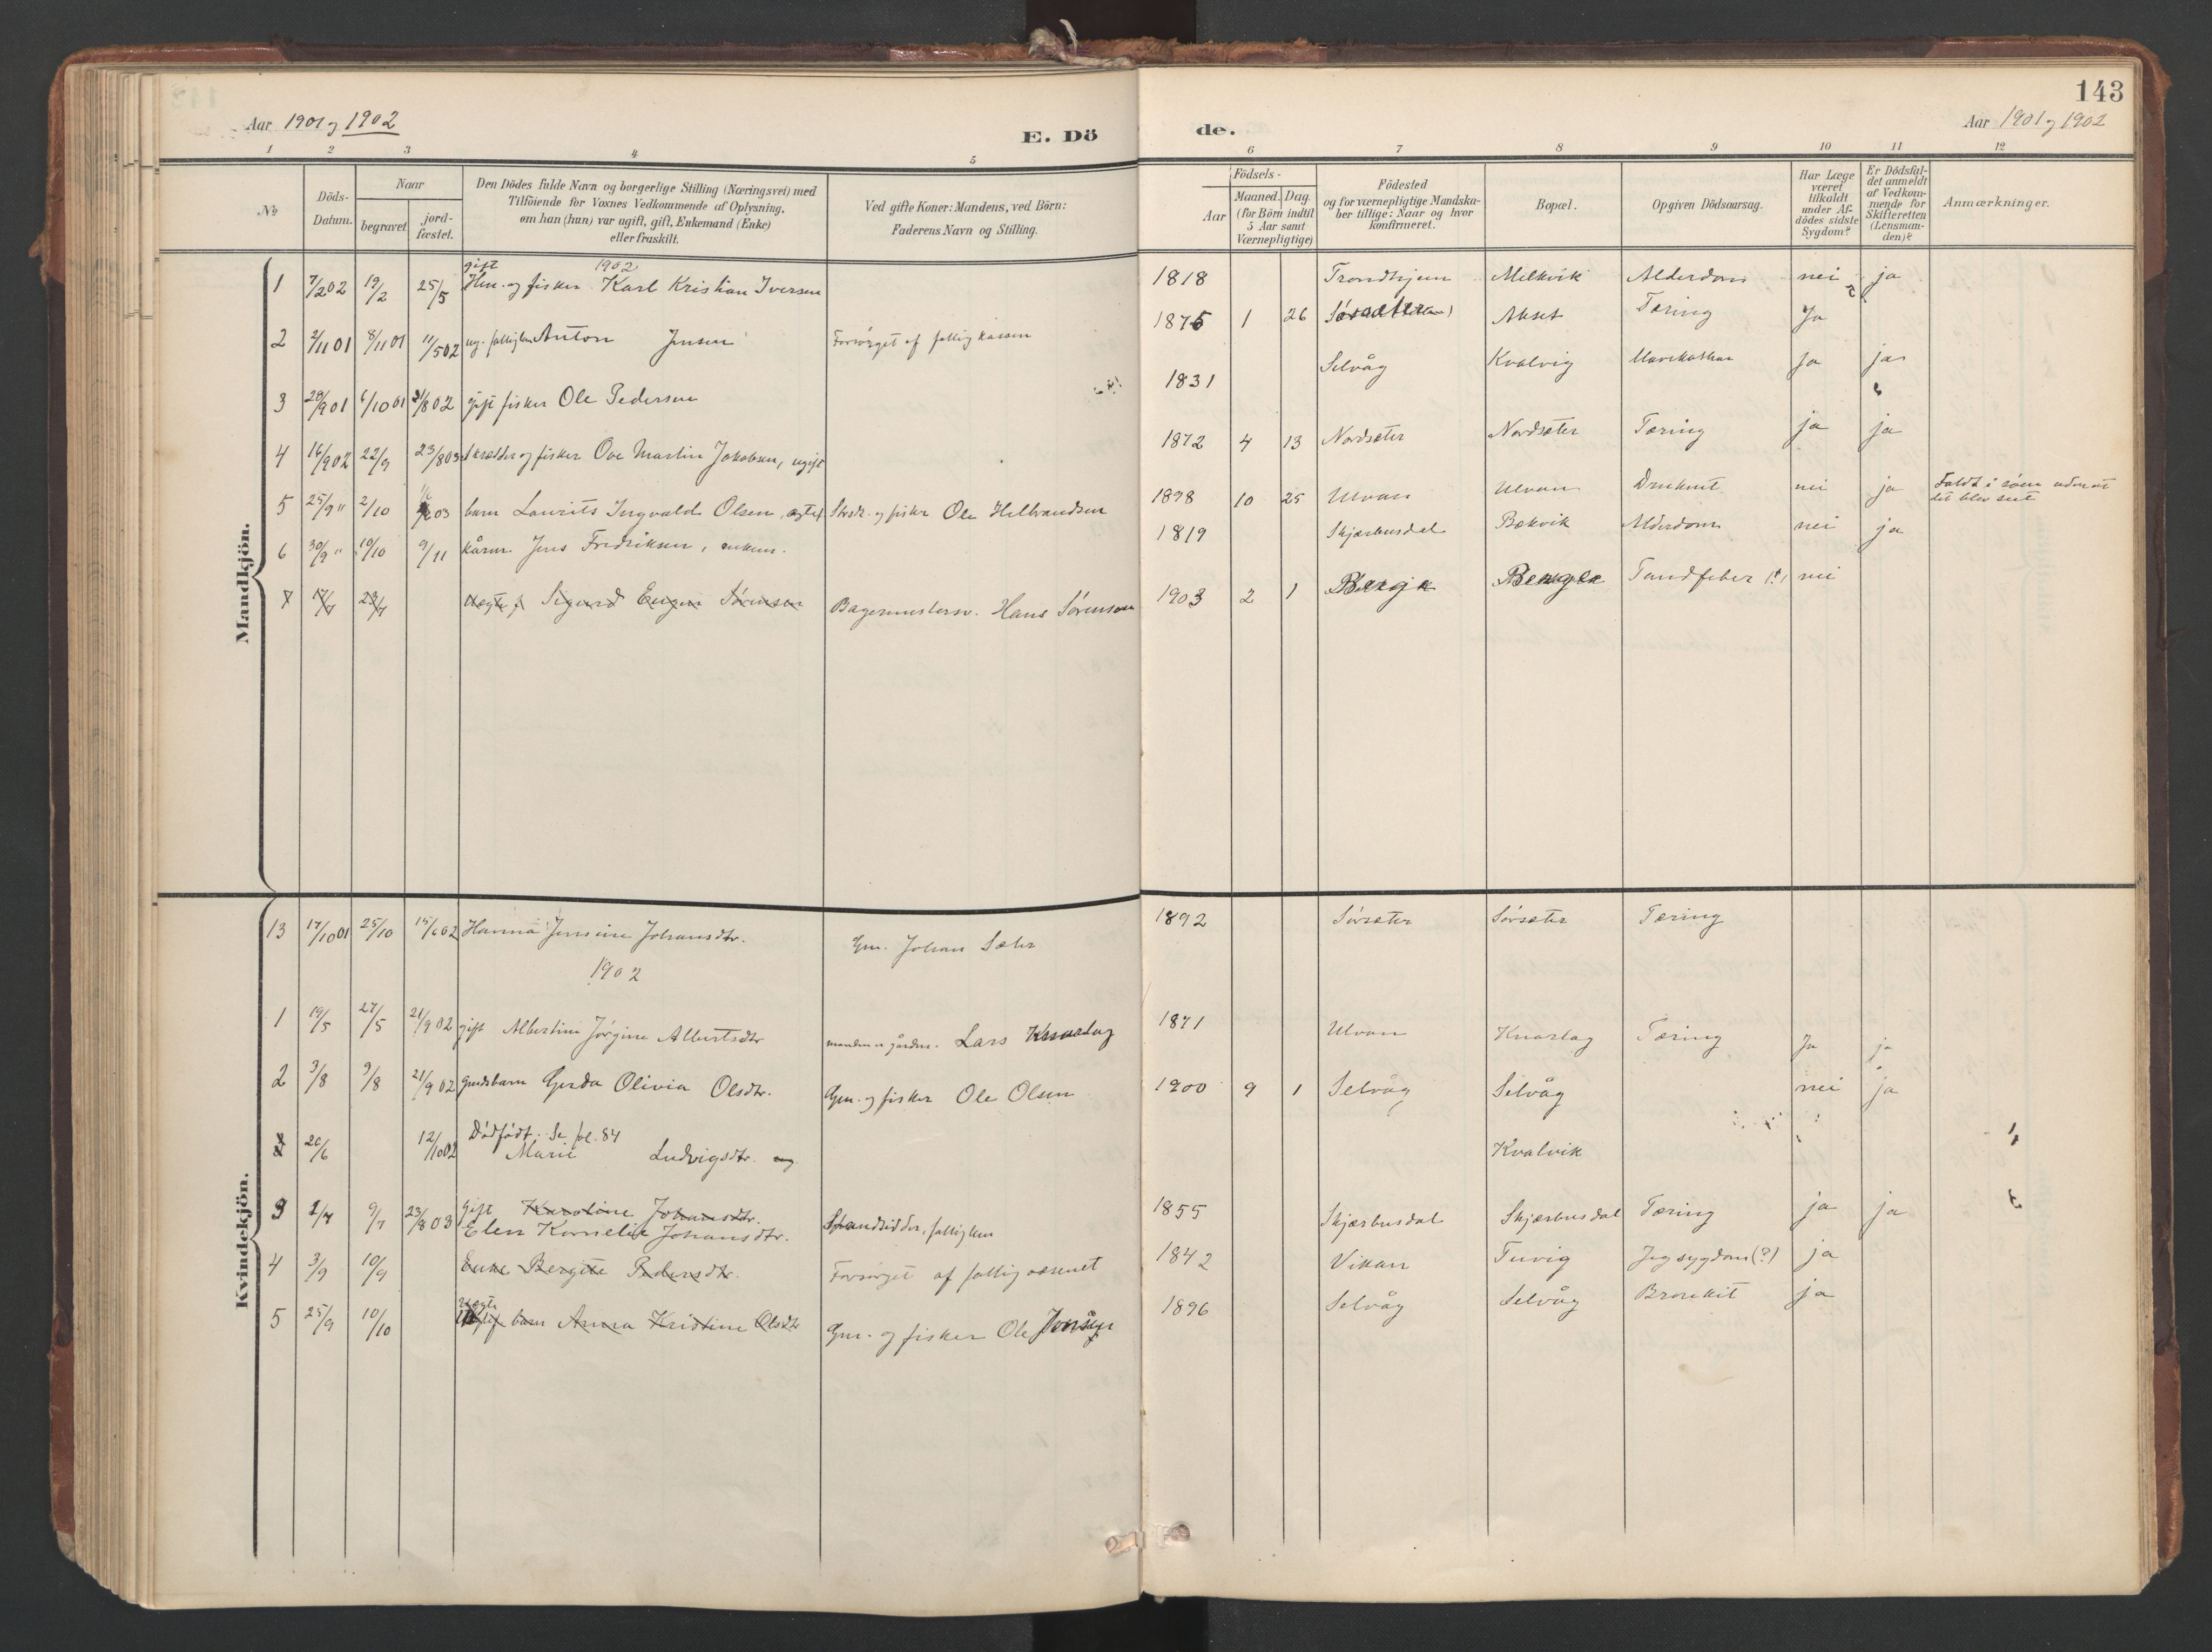 Aar 1901 og 1902
E. Dö
de.
143
Aar 1901 og 1902
1 2 3 4 5 6 7 8 9 10 11 12
No
Döds-Datum.
Naar
begravet
jordfæstet.
Den Dödes fulde Navn og borgerlige Stilling (Næringsvei) med
Tilföiende for Voxnes Vedkommende af Oplysning,
om han (hun) var ugift, gift, Enkemand (Enke)
eller fraskilt.
Ved gifte Koner: Mandens, ved Börn:
Faderens Navn og Stilling.
Födsels-
Aar
Maaned. Dag.
(for Börn indtil
5 Aar samt
Værnepligtige)
Födested
og for værnepligtige Mandska-
ber tillige: Naar og hvor
konfirmeret.
Bopæl.
Opgiven Dödsaarsag.
Har Læge
været
tilkaldt
under Af-
dödes sidste
Sygdom?
Er Dödsfal-
det anmeldt
af Vedkom-
mende for
Skifteretten
(Lensman-
den)?
Anmærkninger.
Mandkjön.
gift 1902
1 7/2 02 19/2 25/5 Hm. og fisker Karl Kristian Iversen 1818 Trondhjem Melkvik Alderdom nei ja
2 2/11 01 8/11 01 11/5 02 ug. Anton Jensen Forsørget af fattigkassen 1876 1 26 Akset Tæring Ja
3 28/9 01 6/10 01 31/8 02 gift fisker Ole Pedersen 1831 Selvåg Kvalvig Ja ja
4 16/9 02 22/9 23/8 03 Skrædder og fisker Ove Martin Jakobsen, ugift 1872 4 13 Nordsæter Nordsæter Tæring ja ja
5 25/9 " 2/10 03 barn Laurits Ingvald Olsen, ægtef Skrædr. og fisker Ole Hilbrandsen 1898 10 25 Ulvan Ulvan Druknet nei ja Faldt i søen uden at
det blev seet
6 30/9 " 10/10 9/11 kårm. Jens Fredriksen, enkem. 1819 Skjærbusdal Bekvik Alderdom nei ja
7 17/7 23/7 Uægte f. Sigurd Eugen Sørensen Bagermestersv. Hans Sørensen 1903 2 1 Tandfeber (?) nei
Kvindekjön.
13 17/10 01 25/10 15/6 02 Hanna Jensine Johansdtr. Gm. Johan Sæter 1892 Sørsæter Sørsæter Tæring
1902
1 19/5 27/5 21/9 02 gift Albertine Jørgine Albertsdtr manden er gårdm. Lars Knarlag 1871 Ulvan Knarlag Tæring Ja ja
2 3/8 9/8 21/9 02 Gmdsbarn Gerda Olivia Olsdtr. Gm. og fisker Ole Olsen 1900 9 1 Selvåg Selvåg nei ja
Dødfødt. Se fol. 84
20/6 12/10 02 Marie Ludvigsdtr. Kvalvik
3 2/7 9/7 23/8 03 Gift Karoline Johansdtr. Strandsidder, fattiglem 1855 Skjærbusdal Skjærbusdal Tæring ja ja
Elen Kornelie Johansdtr.
4 3/9 10/9 Enke Bergitte Pedersdtr. Forsørget af fattigvæsenet 1842 Vikan Tuvig (?) ja
uægte
5 25/9 10/10 barn Anna Kristine Olsdtr Gm. og fisker Ole 1896 Selvåg Selvåg Bronkit ja